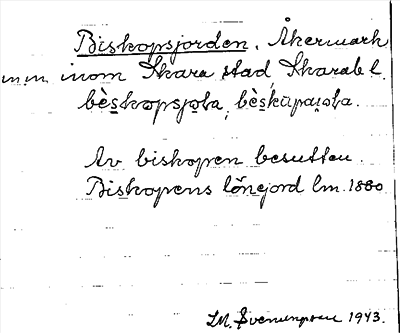 Biskopsjorden. Åkermark
m.m. inom Skara stad, Skarab l.
bèskopsjola, bèskūpaiola.
Av biskopen besutten.
Biskopens lönejord lm. 1880
1943.